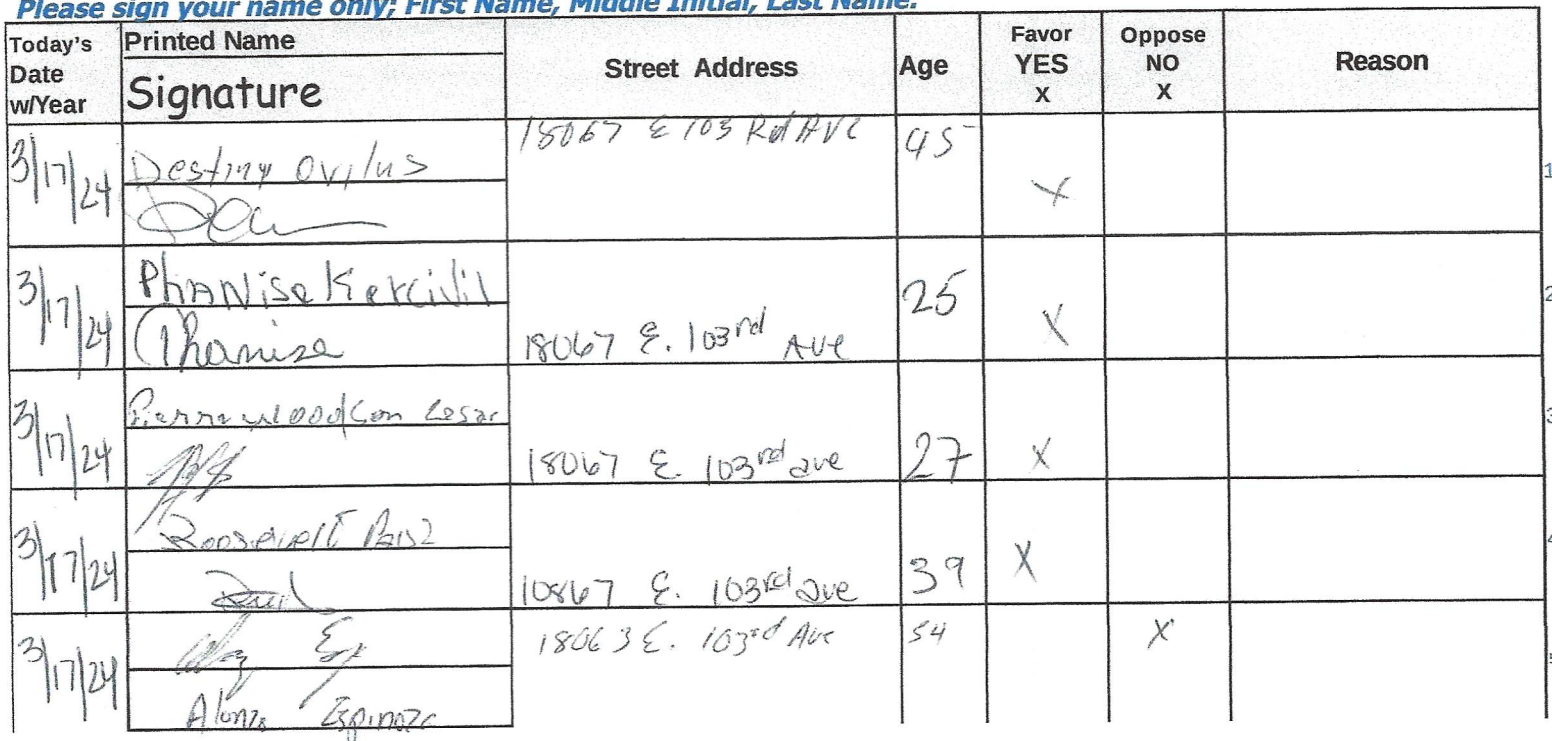 Please sign your name only; First Name, Middle Initial, Last Name.
Today's Date w/Year Printed Name Signature Street Address Age Favor YES X Oppose NO X Reason
3/17/24 Destiny Ovilus 18067 E 103 Rd AVE 45 X 1
3/17/24 PhANise Kercivil 25 X 2
Phanise 18067 E. 103rd AVE
3/17/24 Woodson Cesar 3
18067 E. 103rd ave 27 X
3/17/24 Roosevelt 4
10867 E. 103rd ave 39 X
3/17/24 18063 E. 103rd Ave 54 X 5
Alonzo Espinoza